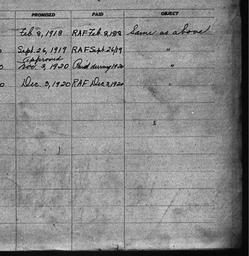 PROMISED PAID OBJECT
Feb. 8, 1918 RAF Feb. 8, 1918 Same as above
Sept. 26, 1919 RAF Sept. 26/19 "
approved
Nov. 3, 1920 Paid during 1920 "
Dec. 3, 1920 RAF Dec 3, 1920 "